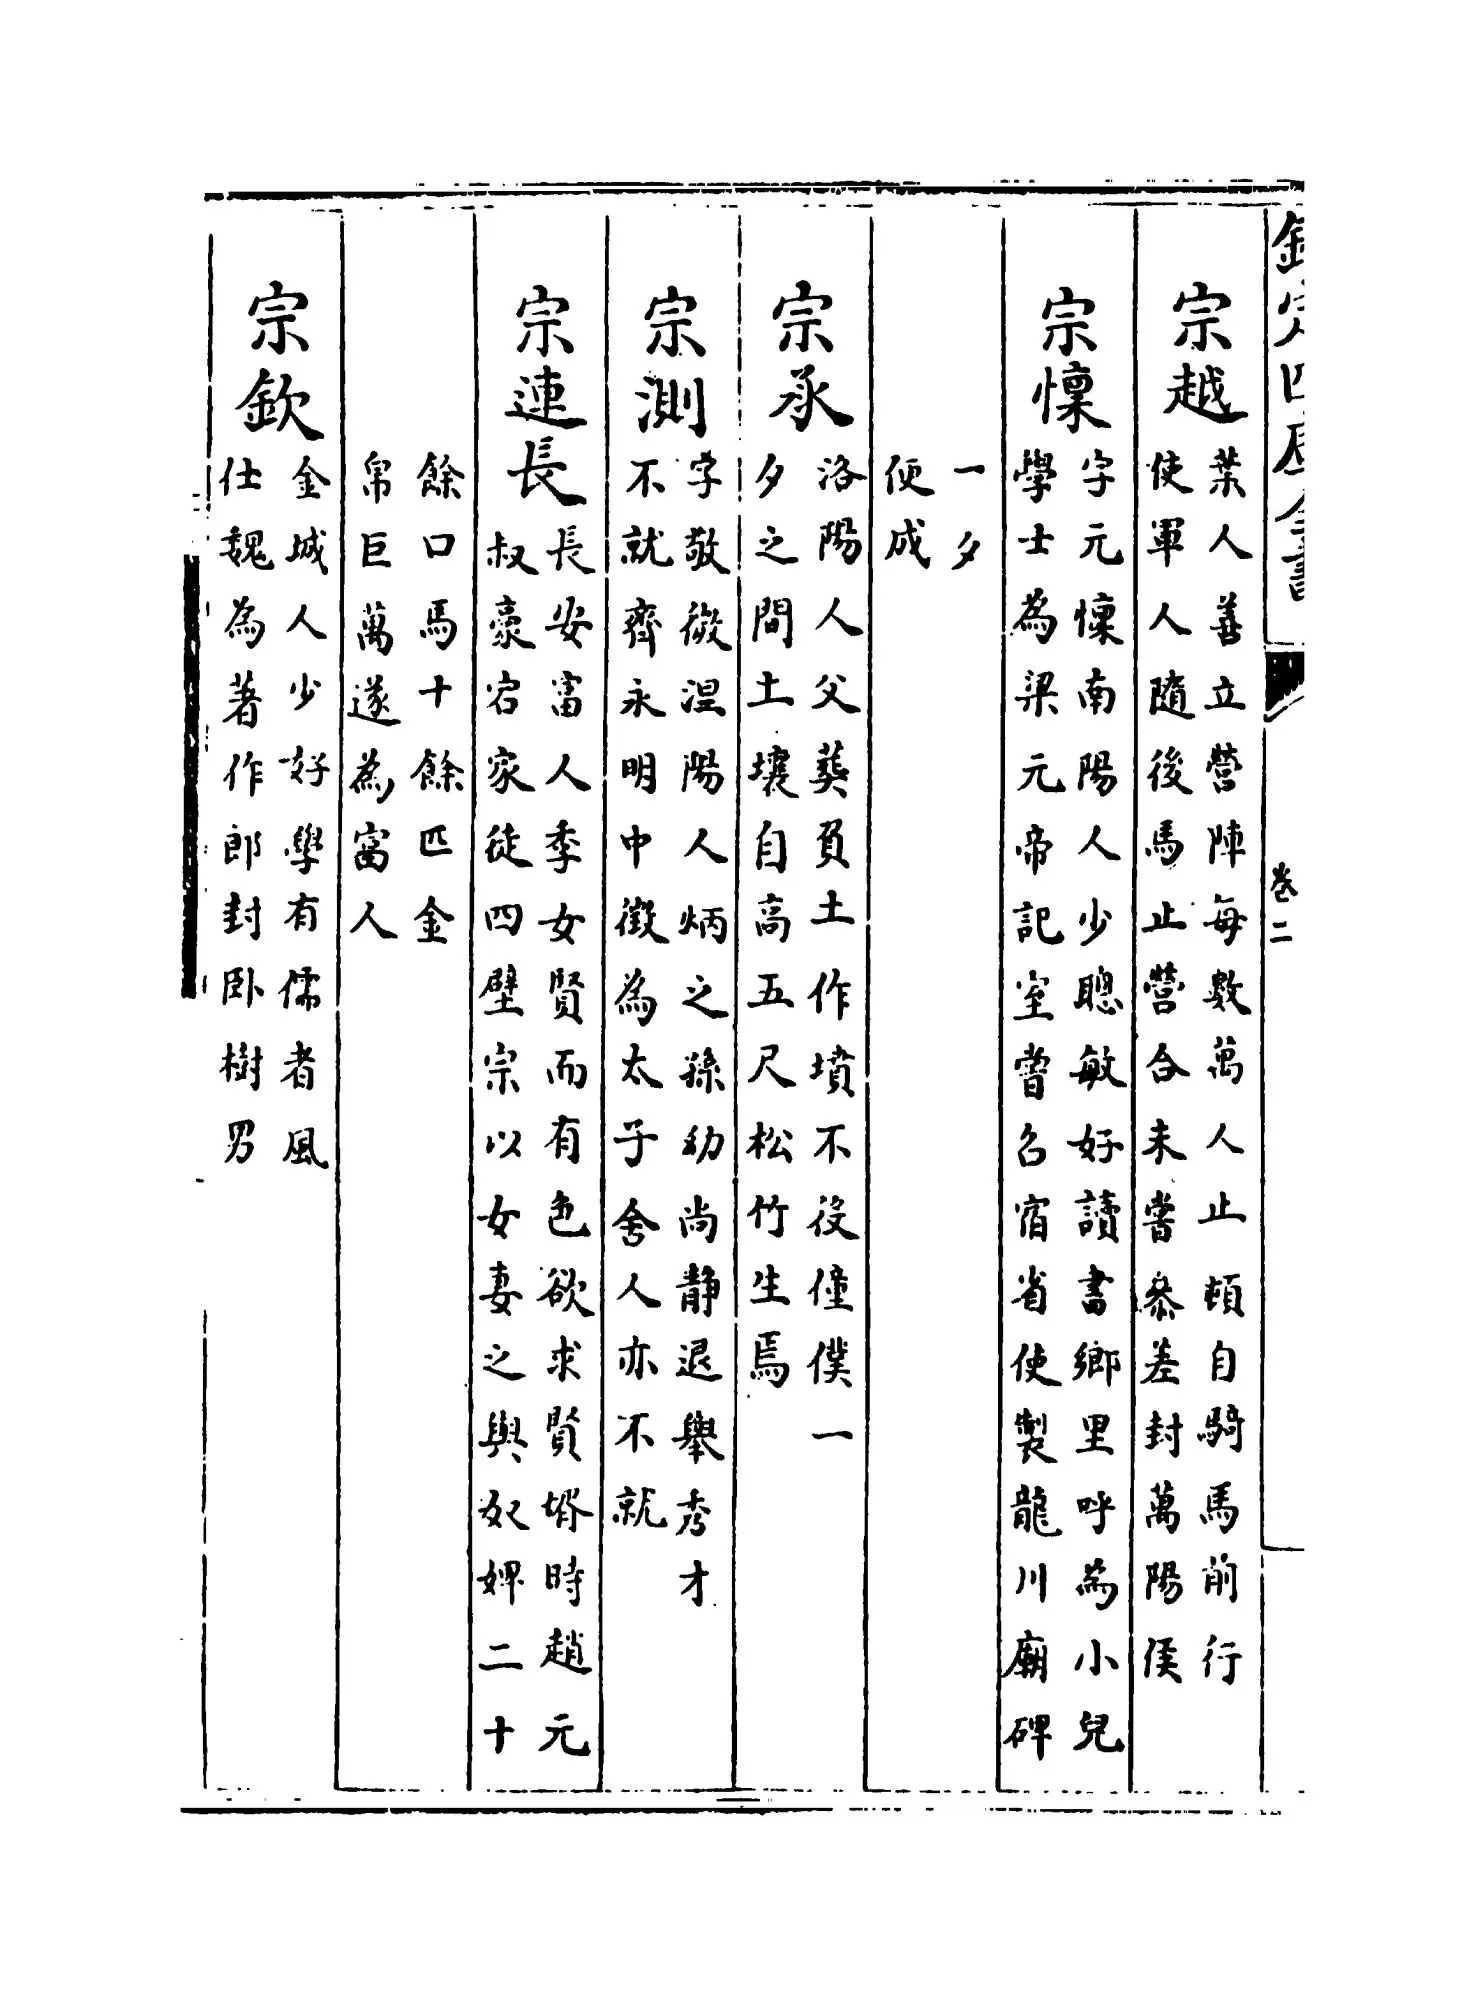 欽定四庫全書
卷二
宗越
葉人善立營陣每數萬人止頓自騎馬前行
使軍人隨後馬止營合未嘗參差封萬陽侯
宗懍
字元懍南陽人少聰敏好讀書鄉里呼為小兒
學士為梁元帝記室嘗召宿省使製龍川廟碑
一夕
便成
宗承
洛陽人父葬負土作墳不役僮僕一
夕之間土壤自高五尺松竹生焉
宗測
字敬微涅陽人炳之孫幼尚靜退舉秀才
不就齊永明中徵為太子舍人亦不就
宗連長
長安富人季女賢而有色欲求賢壻時趙元
叔豪宕家徒四壁宗以女妻之與奴婢二十
餘口馬十餘匹金
帛巨萬遂為富人
宗欽
金城人少好學有儒者風
仕魏為著作郎封卧樹男